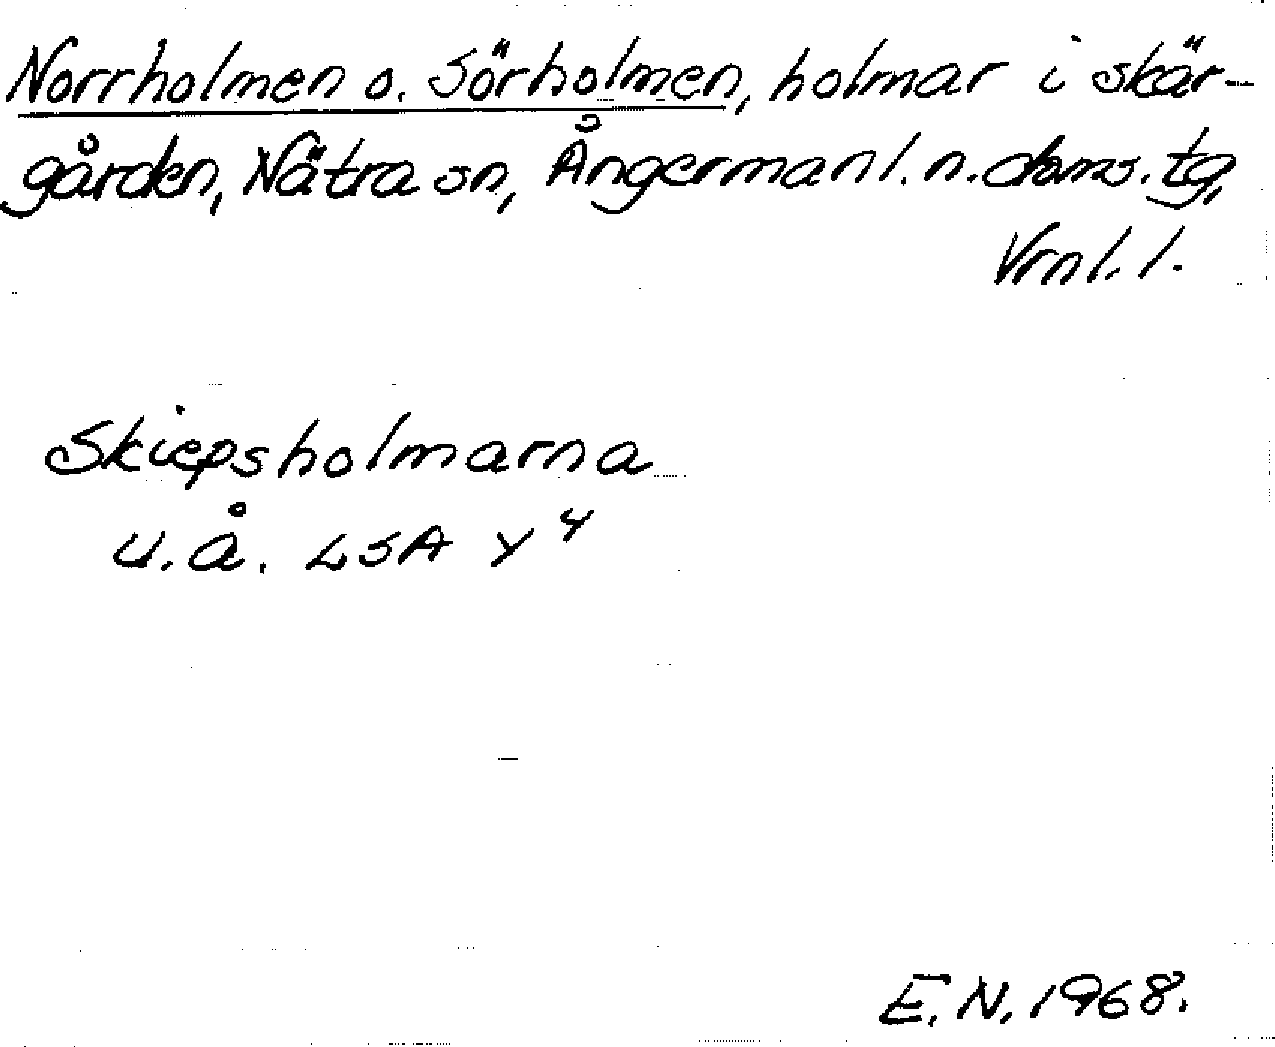 Norrholmen o. Sörholmen, holmar i skär-
gården, Nätra sn, Ångermanl. n. doms. tg,
Vrnl. l.
Skiepsholmarna
u.å. LSA Y 4
E.N. 1968.